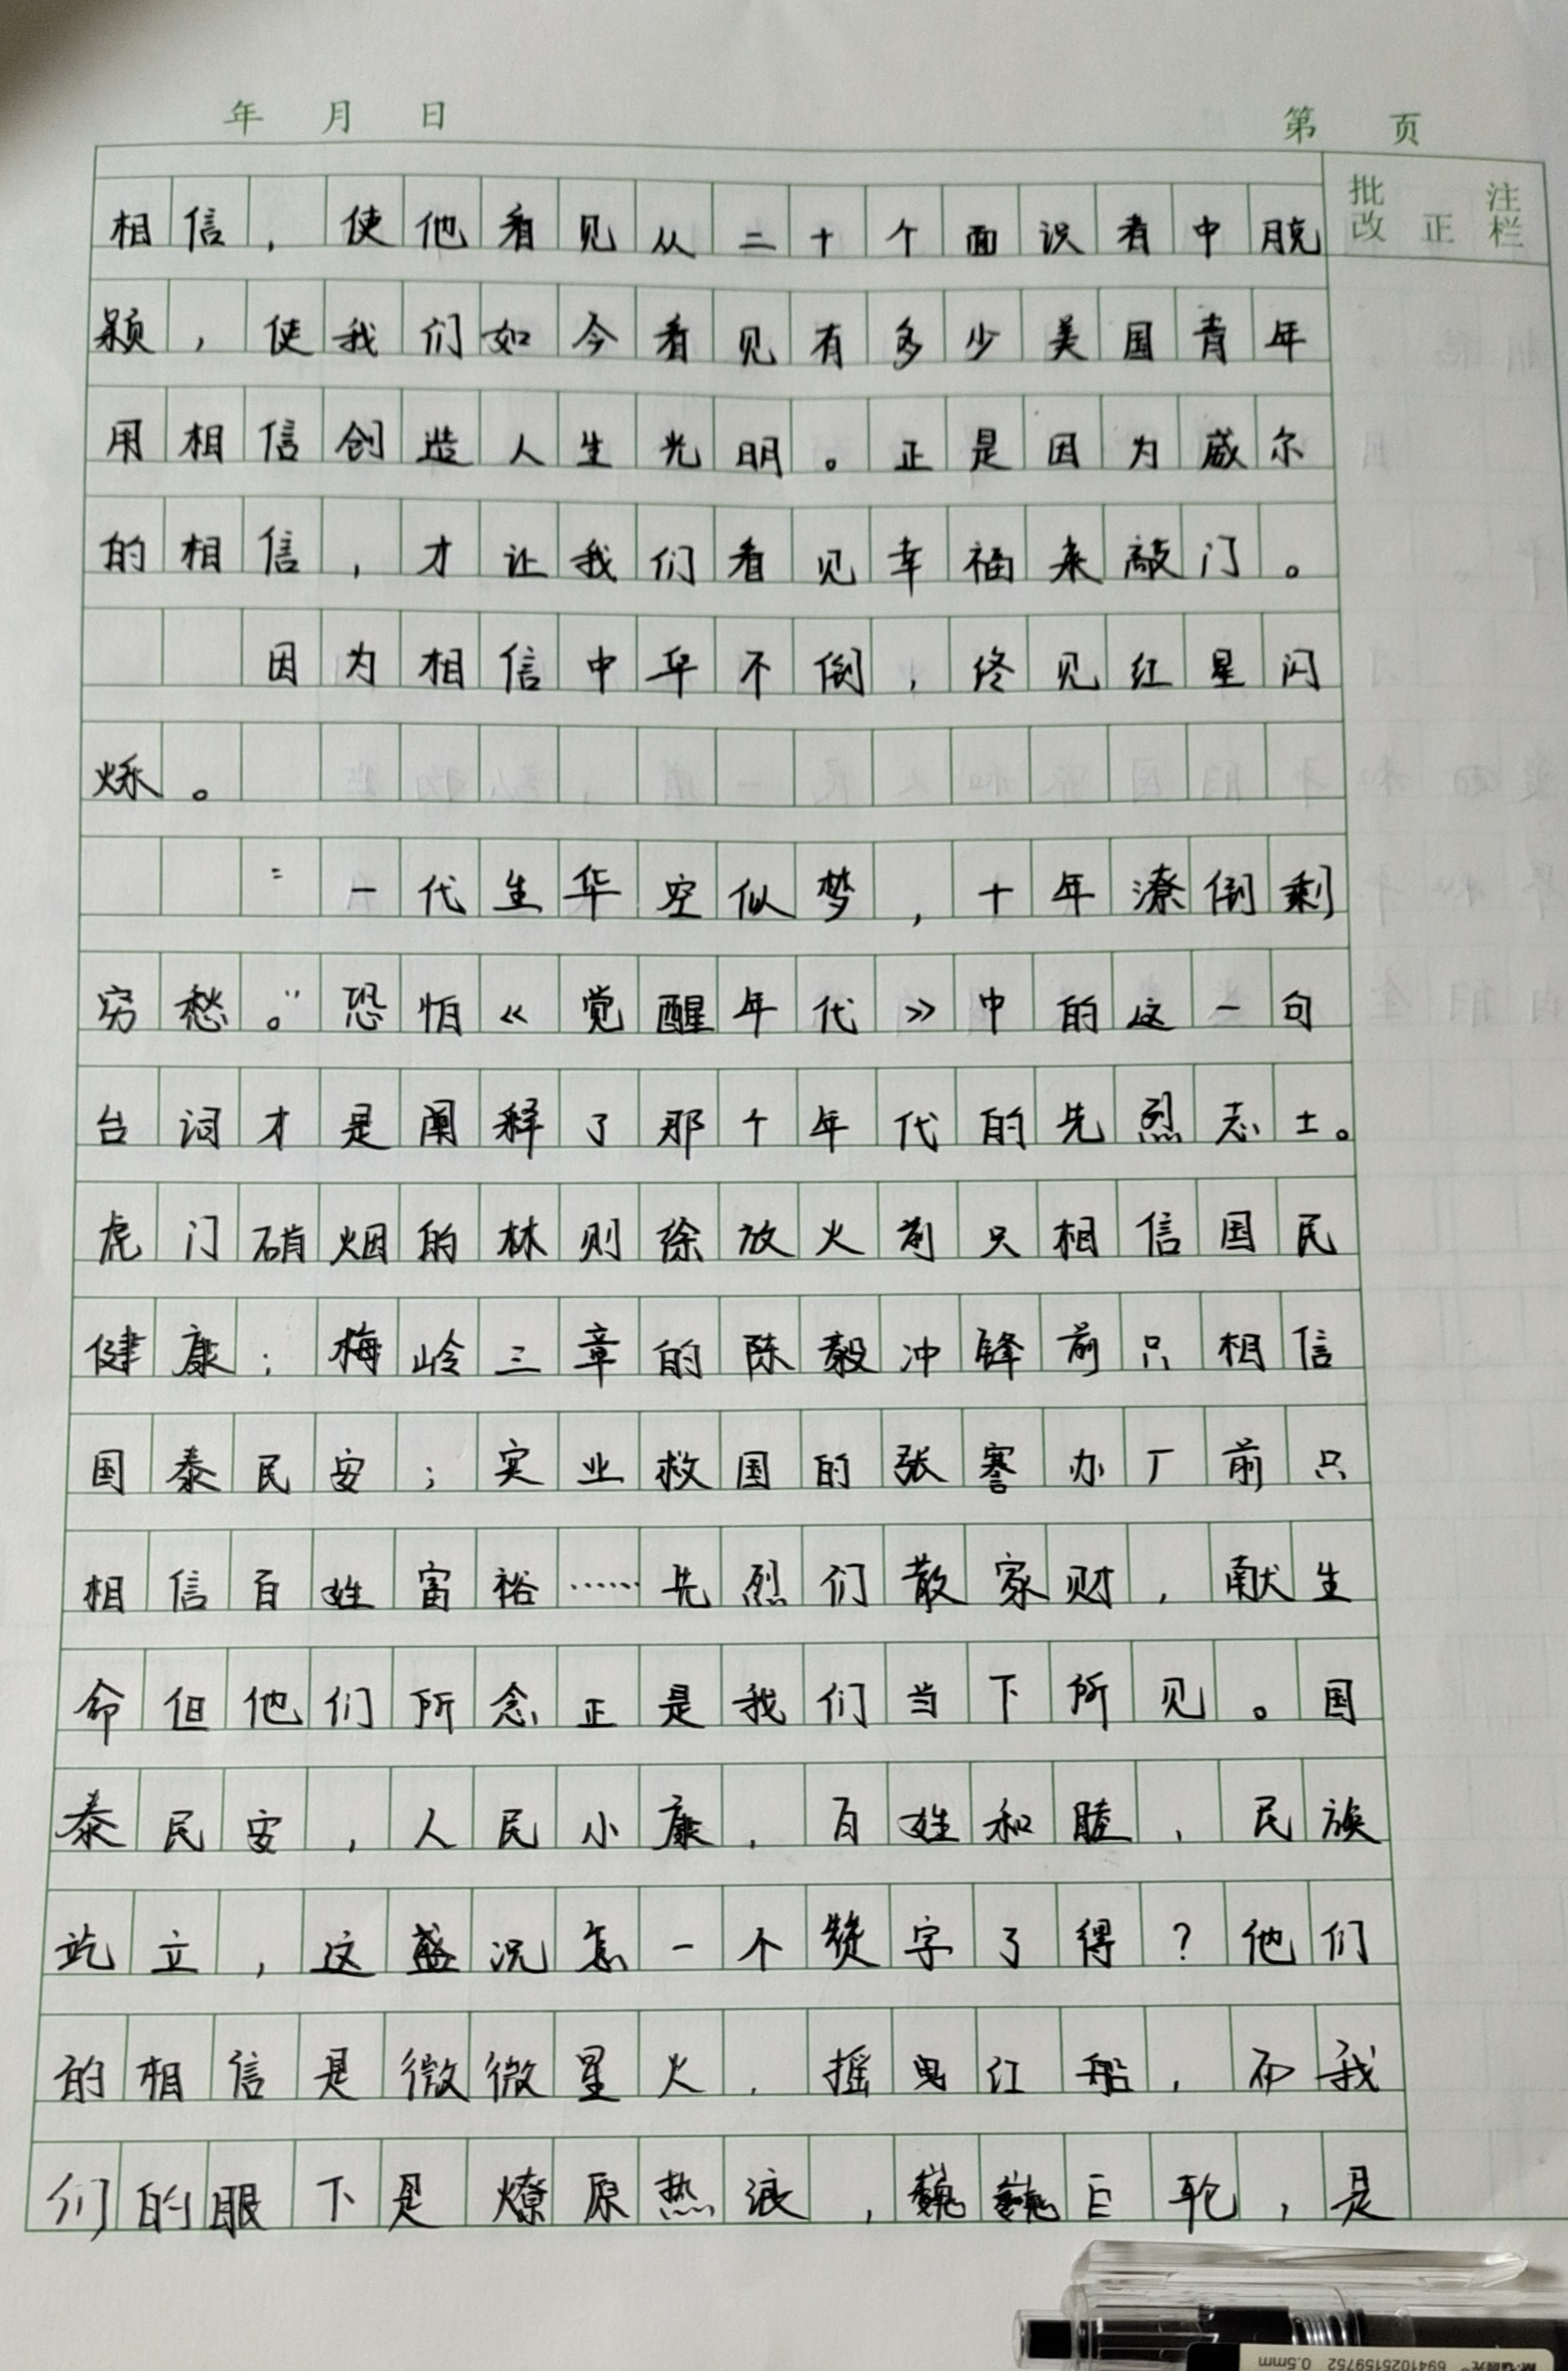 年 月 日 第 页
批注
改正栏
相信，使他看见从二十个面识者中脱
颖，使我们如今看见有多少美国青年
用相信创造人生光明。正是因为威尔
的相信，才让我们看见幸福来敲门。
因为相信中华不倒，终见红星闪
烁。
“一代生华空似梦，十年潦倒剩
穷愁。”恐怕《觉醒年代》中的这一句
台词才是阐释了那个年代的先烈志士。
虎门硝烟的林则徐放火前只相信国民
健康；梅岭三章的陈毅冲锋前只相信
国泰民安；实业救国的张謇办厂前只
相信百姓富裕……先烈们散家财，献生
命但他们所念正是我们当下所见。国
泰民安，人民小康，百姓和睦，民族
屹立，这盛况怎一个赞字了得？他们
的相信是微微星火，摇曳红船，而我
们的眼下是燎原热浪，巍巍巨轮，是
6941025159752 0.5mm